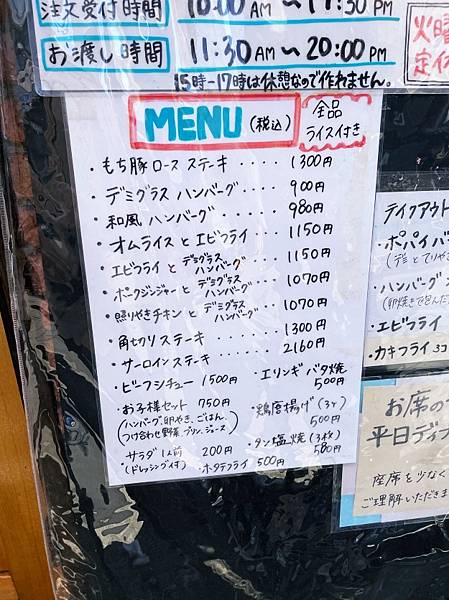 注文受付時間 10:00 AM〜19:30 PM
お渡し時間 11:30 AM〜20:00 PM
15時-17時は休憩なので作れません。
火曜
定休
MENU (税込)
全品
ライス付き
・もち豚ロースステーキ・・・・ 1300円
・デミグラス ハンバーグ・・・・ 900円
・和風 ハンバーグ・・・・・ 980円
・オムライスとエビフライ・・・ 1150円
・エビフライとデミグラスハンバーグ・・・ 1150円
・ポークジンジャーとデミグラスハンバーグ・・ 1070円
・照りやきチキンとデミグラスハンバーグ・・ 1070円
・角切りステーキ・・・・・ 1300円
・サーロインステーキ・・・・ 2160円
・ビーフシチュー 1500円
・お子様セット 750円
(ハンバーグ、卵やき、ごはん、
つけ合わせ野菜、プリン、ジュース)
・サラダ 1人前 200円
(ドレッシング付)
・エリンギバタ焼
500円
・鶏唐揚げ(3ヶ)
500円
・タン塩焼(3枚)
580円
・ホタテフライ 500円
テイクアウト
・ポパイバ
(デミとてりや
・ハンバーグ
・エビフライ
・カキフライ 3コ
お席の
平日ディ
座席を少なく
ご理解いただきま